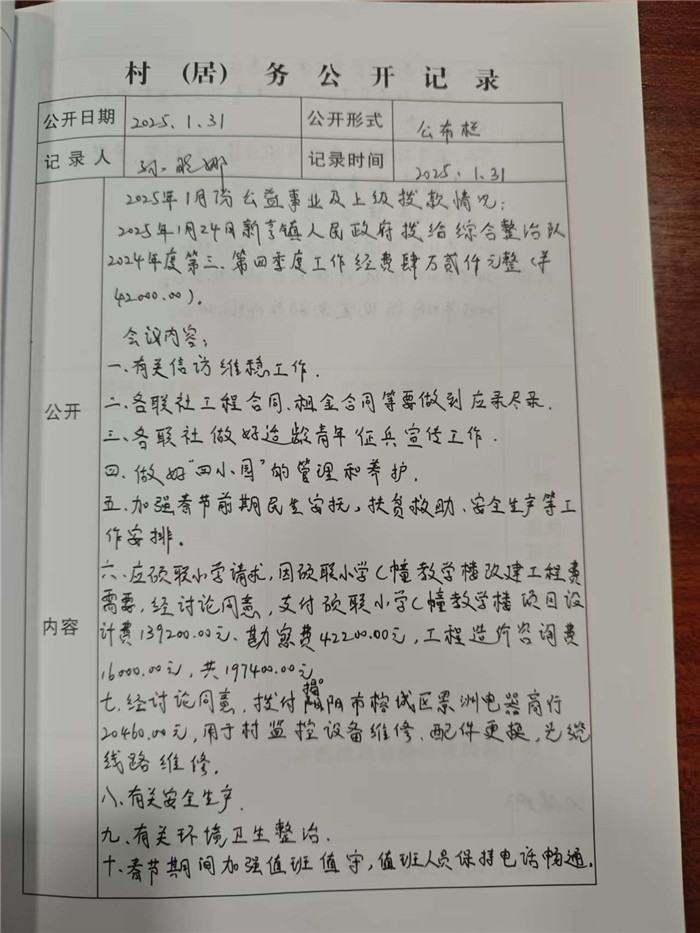 村（居）务公开记录
公开日期 2025.1.31 公开形式 公布栏
记录人 孙 娜 记录时间 2025.1.31
公开内容
2025年1月份公益事业及上级拨款情况：
2025年1月24日新亨镇人民政府拨给综合整治队
2024年度第三、第四季度工作经费肆万贰仟元整（¥
42000.00）。
会议内容：
一.有关信访维稳工作.
二.各联社工程合同、租金合同等要做到应录尽录.
三.各联社做好适龄青年征兵宣传工作.
四.做好“四小园”的管理和养护.
五.加强春节前期民生安抚、扶贫救助、安全生产等工
作安排。
六.应硕联小学请求，因硕联小学C幢教学楼改建工程费
需要，经讨论同意，支付硕联小学C幢教学楼项目设
计费139200.00元、勘察费42200.00元，工程造价咨询费
16000.00元，共197400.00元。
七.经讨论同意，拨付揭阳市榕城区景洲电器商行
20460.00元，用于村监控设备维修、配件更换，光缆
线路维修.
八.有关安全生产.
九.有关环境卫生整治.
十.春节期间加强值班值守，值班人员保持电话畅通.